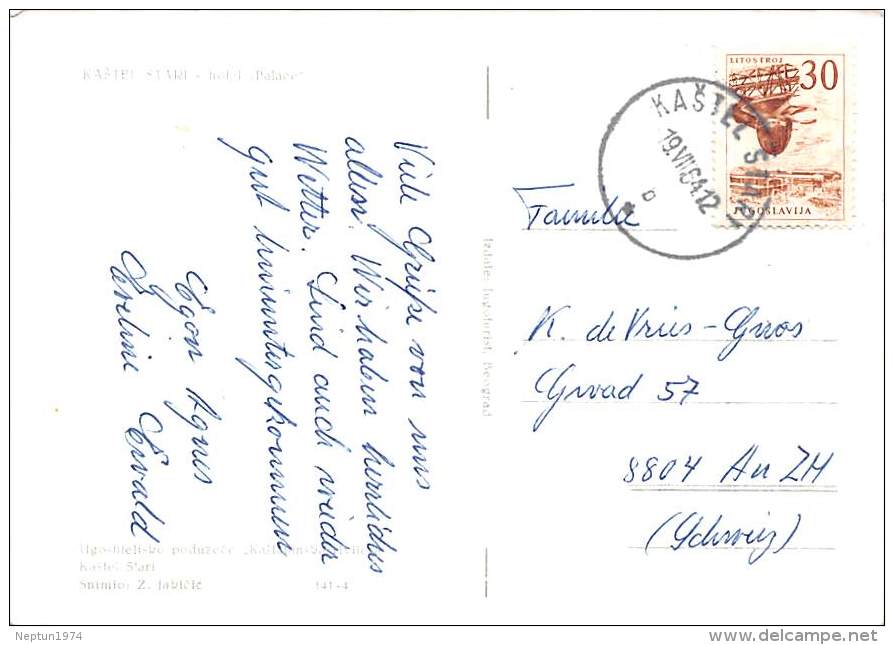 KAŠTEL STARI - hotel „Palace“
Viele Grüße von uns
allen. Wir haben herrliches
Wetter. Sind auch wieder
gut hinuntergekommen
Egon Agnes
Eveline Ewald
Ugostiteljsko poduzeće
Kaštel Stari
Snimio: Z. Jabičić
141-4
Izdaje: Jugoturist, Beograd
LITOSTROJ
30
JUGOSLAVIJA
KAŠTEL STARI
19.VII.64.12
b
Familie
K. de Vries-Guos
Gwad 57
8804 Au ZH
(Schweiz)
Neptun1974
delcampe.net